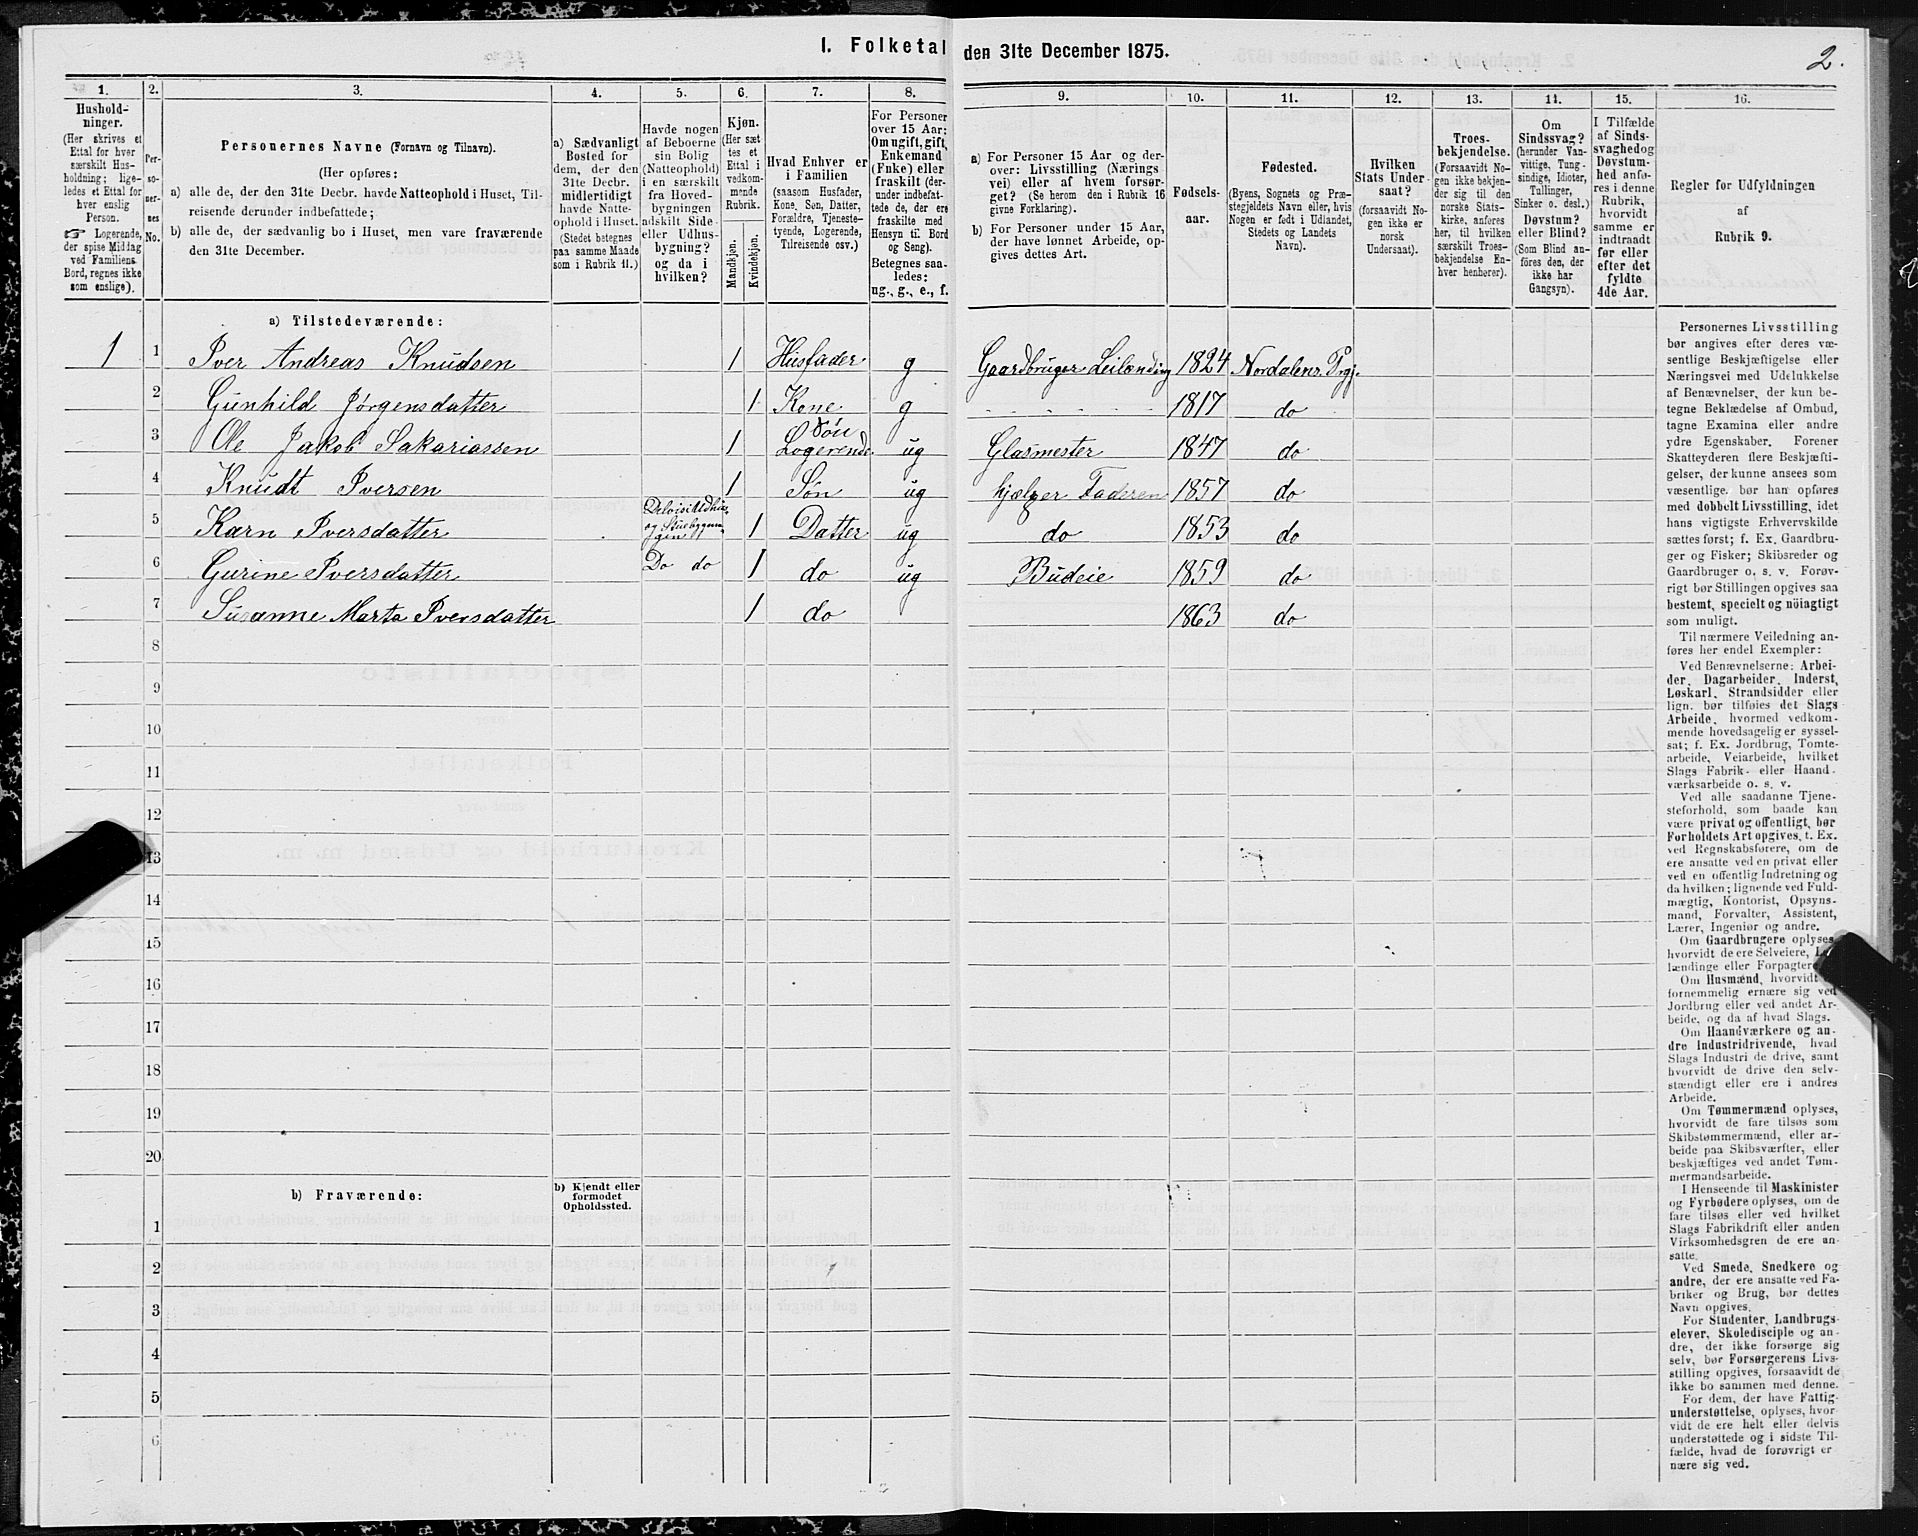 I. Folketal den 31te December 1875.
2.
1.
Hushold-
ninger.
(Her skrives et
Ettal for hver
særskilt Hus-
holdning; lige-
ledes et Ettal for
hver enslig
Person.
Logerende,
der spise Middag
ved Familiens
Bord, regnes ikke
som enslige).
2.
Per-
so-
ner-
nes
No.
3.
Personernes Navne (Fornavn og Tilnavn).
(Her opføres:
a) alle de, der den 31te Decbr. havde Natteophold i Huset, Til-
reisende derunder indbefattede;
b) alle de, der sædvanlig bo i Huset, men vare fraværende
den 31te December.
4.
a) Sædvanligt
Bosted for
dem, der den
31te Decbr.
midlertidigt
havde Natte-
ophold i Huset.
(Stedet betegnes
paa samme Maade
som i Rubrik 11.)
5.
Havde nogen
af Beboerne
sin Bolig
(Natteophold)
i en særskilt
fra Hoved-
bygningen
adskilt Side-
eller Udhus-
bygning?
og da i
hvilken?
6.
Kjøn.
(Her sæt
tes et
Ettal i
vedkom-
mende
Rubrik.
Mandkjøn.
Kvindekjøn.
7.
Hvad Enhver er
i Familien
(saasom Husfader,
Kone, Søn, Datter,
Forældre, Tjeneste-
tyende, Logerende,
Tilreisende osv.)
8.
For Personer
over 15 Aar:
Om ugift, gift,
Enkemand
(Enke) eller
fraskilt (der-
under indbefat-
tede de, der ere
fraskilte med
Hensyn til Bord
og Seng).
Betegnes saa-
ledes:
ug., g., e., f.
9.
a) For Personer 15 Aar og der-
over: Livsstilling (Nærings
vei) eller af hvem forsør-
get? (Se herom den i Rubrik 16
givne Forklaring).
b) For Personer under 15 Aar,
der have lønnet Arbeide, op-
gives dettes Art.
10.
Fødsels-
aar.
11.
Fødested.
(Byens, Sognets og Præ-
stegjeldets Navn eller, hvis
Nogen er født i Udlandet,
Stedets og Landets
Navn).
12.
Hvilken
Stats Under
saat?
(forsaavidt No-
gen ikke er
norsk
Undersaat).
13.
Troes-
bekjendelse.
(Forsaavidt No-
gen ikke bekjen-
der sig til den
norske Stats-
kirke, anføres
her, til hvilken
særskilt Troes-
bekjendelse En-
hver henhører).
14.
Om
Sindssvag?
(herunder Van-
vittige, Tung-
sindige, Idioter,
Tullinger,
Sinker o. desl.)
Døvstum?
eller Blind?
(Som Blind an-
føres den, der
ikke har
Gangsyn).
15.
I Tilfælde
af Sinds-
svaghed og
Døvstum-
hed anfø-
res i denne
Rubrik,
hvorvidt
samme er
indtraadt
før eller
efter det
fyldte
4de Aar.
16.
Regler for Udfyldningen
af
Rubrik 9.
a) Tilstedeværende:
1 1 Iver Andreas Knudsen 1 Husfader g Gaardbruger Leilænding 1824 Nordalens Prgj.
2 Gunhild Jørgensdatter 1 Kone g 1817 do
Søn
3 Ole Jakob Sakariassen 1 Logerende ug Glasmester 1847 do
4 Knudt Iversen 1 Søn ug hjælper Faderen 1857 do
5 Karn Iversdatter 1 Datter ug do 1853 do
6 Gurine Iversdatter Do do 1 do ug Budeie 1859 do
7 Susanne Marta Iversdatter 1 do 1863 do
8
9
10
11
12
13
14
15
16
17
18
19
20
b) Fraværende:
b) Kjendt eller
formodet
Opholdssted.
1
2
3
4
5
6
Personernes Livsstilling
bør angives efter deres væ-
sentlige Beskjæftigelse eller
Næringsvei med Udelukkelse
af Benævnelser, der kun be-
tegne Beklædelse af Ombud,
tagne Examina eller andre
ydre Egenskaber. Forener
Skatteyderen flere Beskjæfti-
gelser, der kunne ansees som
væsentlige, bør han opføres
med dobbelt Livsstilling, idet
hans vigtigste Erhvervskilde
sættes først; f. Ex. Gaardbru-
ger og Fisker; Skibsreder og
Gaardbruger o. s. v. Forøv-
rigt bør Stillingen opgives saa
bestemt, specielt og nöiagtigt
som muligt.
Til nærmere Veiledning an-
føres her endel Exempler:
Ved Benævnelserne: Arbei-
der, Dagarbeider, Inderst,
Løskarl, Strandsidder eller
lign. bør tilføies det Slags
Arbeide, hvormed vedkom-
mende hovedsagelig er syssel-
sat; f. Ex. Jordbrug, Tomte-
arbeide, Veiarbeide, hvilket
Slags Fabrik- eller Haand-
værksarbeide o. s. v.
Ved alle saadanne Tjene-
steforhold, som baade kan
være privat og offentligt, bør
Forholdets Art opgives, t. Ex.
ved Regnskabsførere, om de
ere ansatte ved en privat eller
ved en offentlig Indretning og
da hvilken; lignende ved Fuld-
mægtig, Kontorist, Opsyns-
mand, Forvalter, Assistent,
Lærer, Ingeniør og andre.
Om Gaardbrugere oplyses,
hvorvidt de ere Selveiere, Lei-
lændinge eller Forpagtere.
Om Husmænd, hvorvidt de
fornemmelig ernære sig ved
Jordbrug eller ved andet Ar-
beide, og da af hvad Slags.
Om Haandværkere og an-
dre Industridrivende, hvad
Slags Industri de drive, samt
hvorvidt de drive den selv-
stændigt eller ere i andres
Arbeide.
Om Tømmermænd oplyses,
hvorvidt de fare tilsøs som
Skibstømmermænd, eller ar-
beide paa Skibsværfter, eller
beskjæftiges ved andet Tøm-
mermandsarbeide.
I Henseende til Maskinister
og Fyrbødere oplyses, om de
fare tilsøs eller ved hvilket
Slags Fabrikdrift eller anden
Virksomhedsgren de ere an-
satte.
Ved Smede, Snedkere og
andre, der ere ansatte ved Fa-
briker og Brug, bør dettes
Navn opgives.
For Studenter, Landbrugs-
elever, Skoledisciple og an-
dre, der ikke forsørge sig
selv, bør Forsørgerens Livs-
stilling opgives, forsaavidt de
ikke bo sammen med denne.
For dem, der have Fattig-
understøttelse, oplyses, hvor-
vidt de ere helt eller delvis
understøttede og i sidste Til-
fælde, hvad de forøvrigt er
nære sig ved.